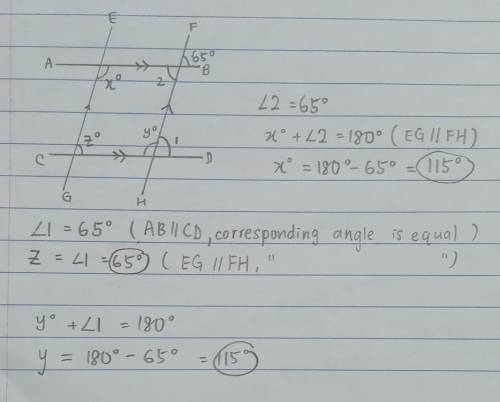 E
F
A
65°
B
x°
2
∠2 = 65°
x° + ∠2 = 180° ( EG // FH )
x° = 180° - 65° = 115°
z°
y°
1
C
D
G
H
∠1 = 65° ( AB // CD , corresponding angle is equal )
Z = ∠1 = 65° ( EG // FH , " " )
y° + ∠1 = 180°
y = 180° - 65° = 115°